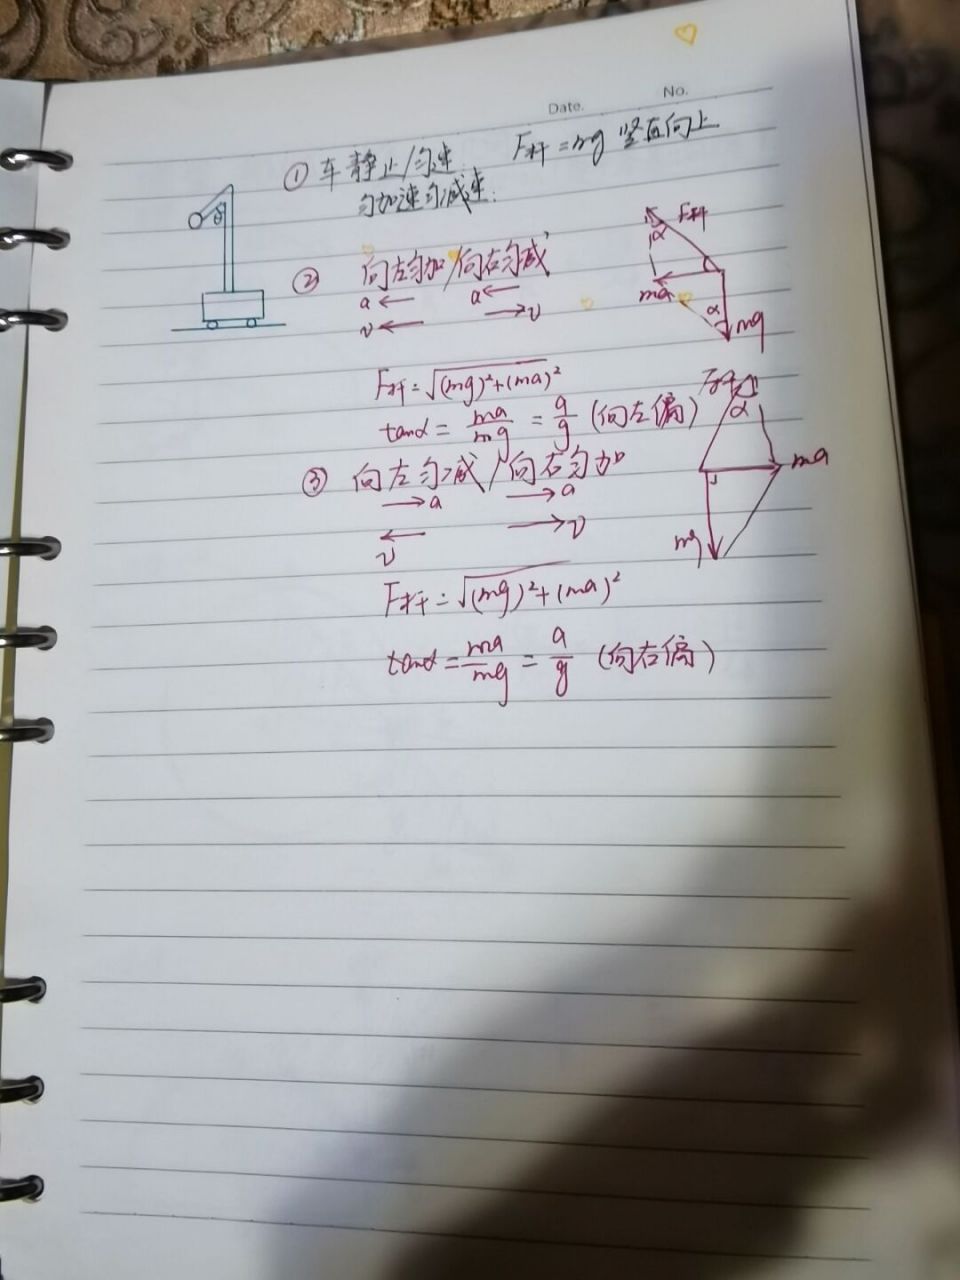 Date. No.
① 车静止/匀速 F杆=mg 竖直向上
匀加速匀减速.
θ
② 向左匀加/向右匀减
a← a←
v← →v
F杆
α
ma
α
mg
F杆=√(mg)²+(ma)²
tanα=ma/mg=a/g (向左偏)
F杆
α
③ 向左匀减/向右匀加
→a →a
← →v
v
ma
mg
F杆=√(mg)²+(ma)²
tanα=ma/mg=a/g (向右偏)